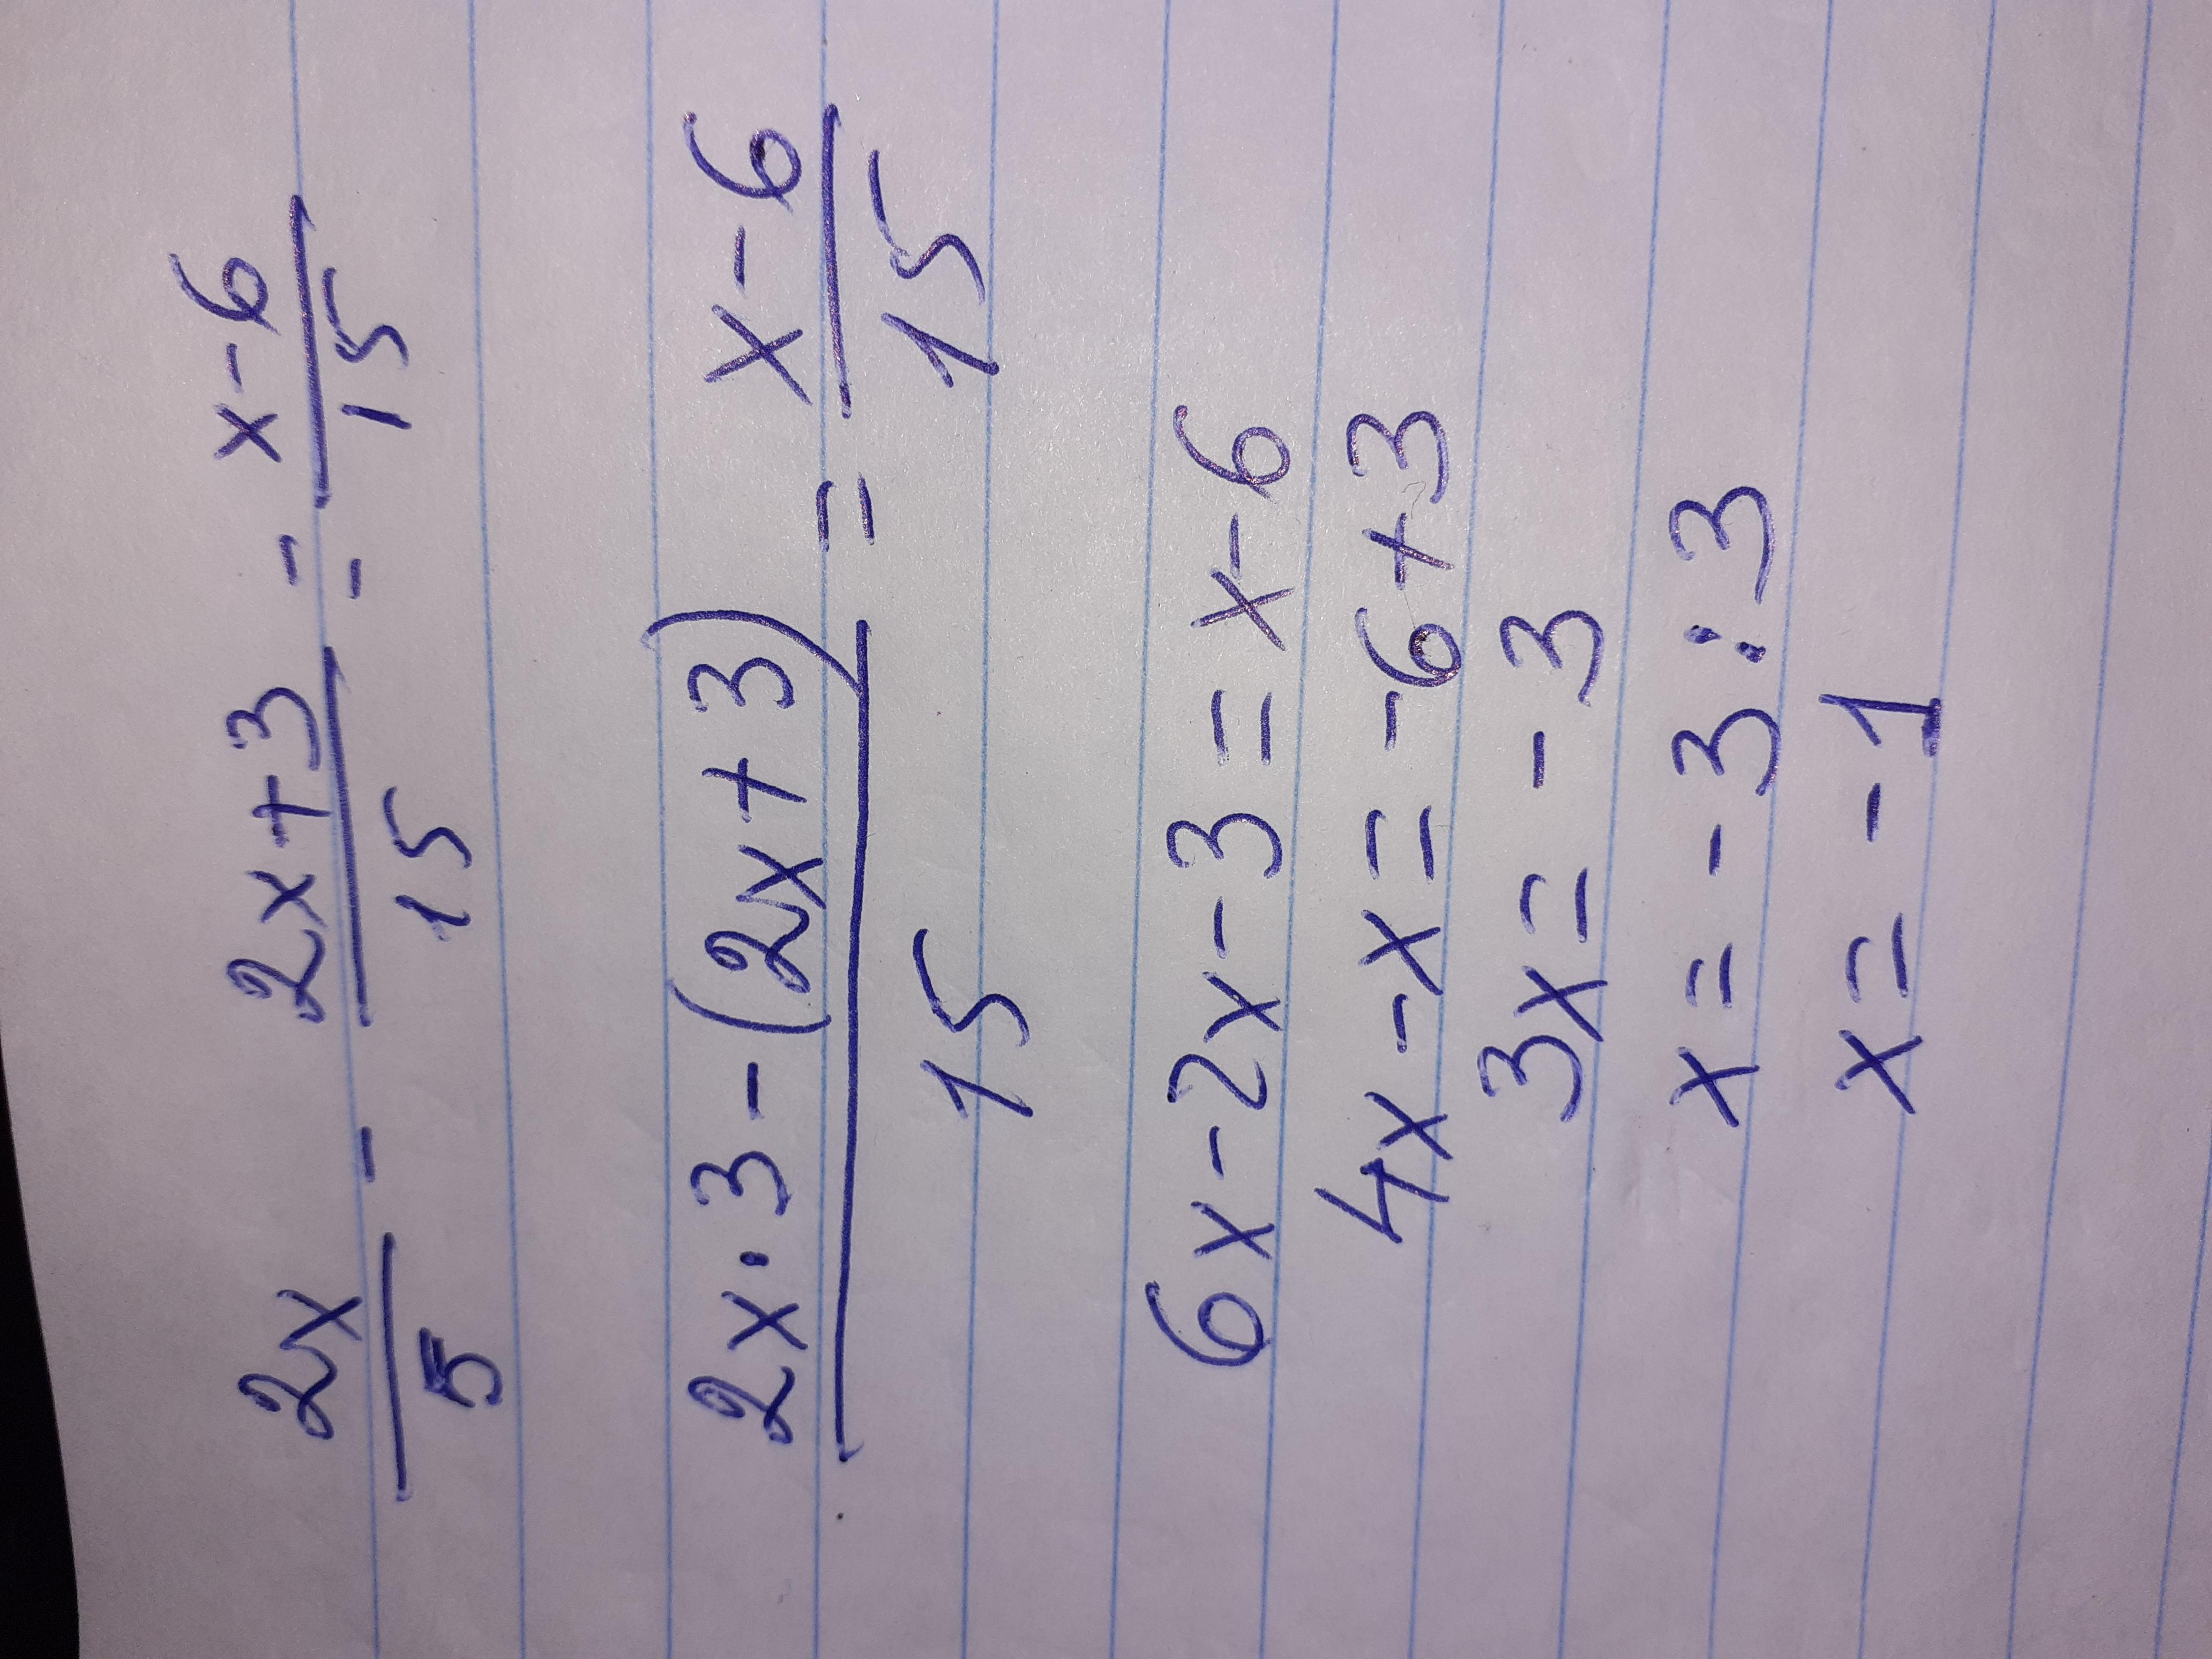 2x/5 - 2x+3/15 = x-6/15
2x·3-(2x+3)/15 = x-6/15
6x-2x-3=x-6
4x-x=-6+3
3x=-3
x=-3:3
x=-1